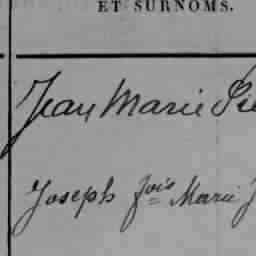 ET SURNOMS.
Jean Marie
Joseph fois Marie